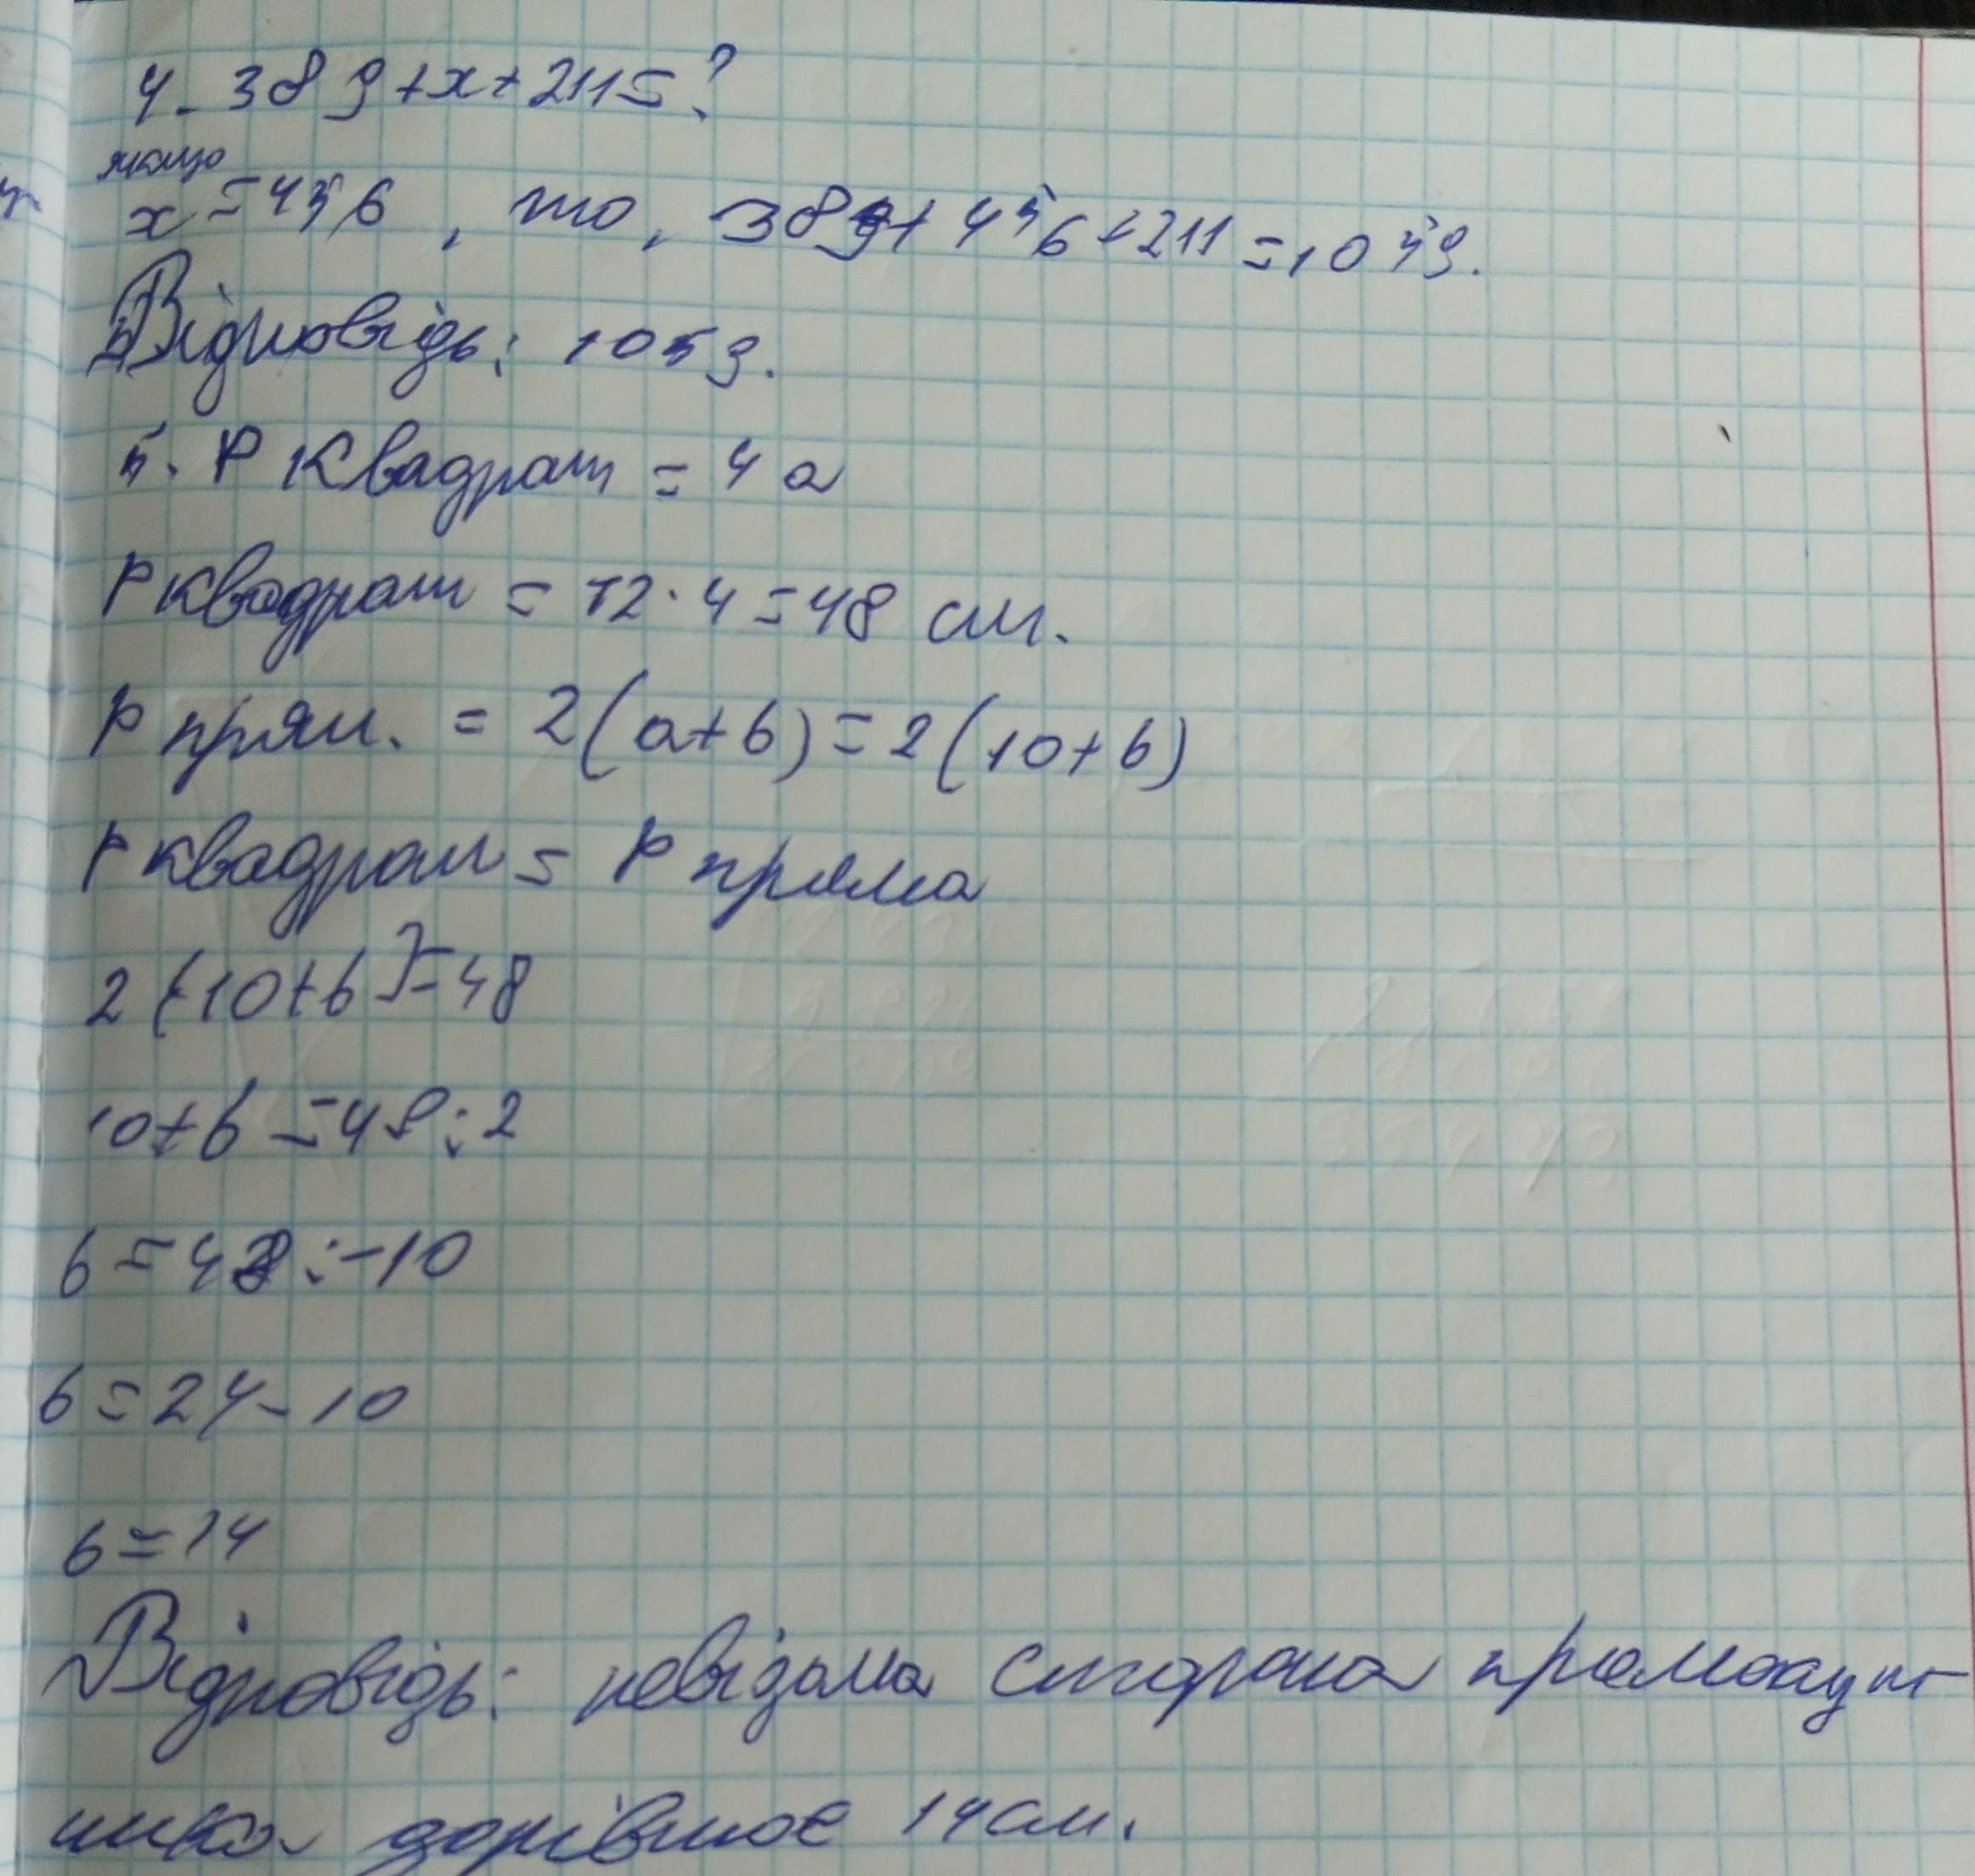 4. 389+x+211=?
якщо
x=456, то, 389+456+211=1059.
Відповідь: 1059.
5. P квадрат = 4a
P квадрат = 12·4=48 см.
P прям. = 2(a+b)=2(10+b)
P квадрат = P прямо
2(10+b)=48
10+b=48:2
b=48:-10
b=24-10
b=14
Відповідь: невідома сторона прямокут
ника дорівнює 14см.